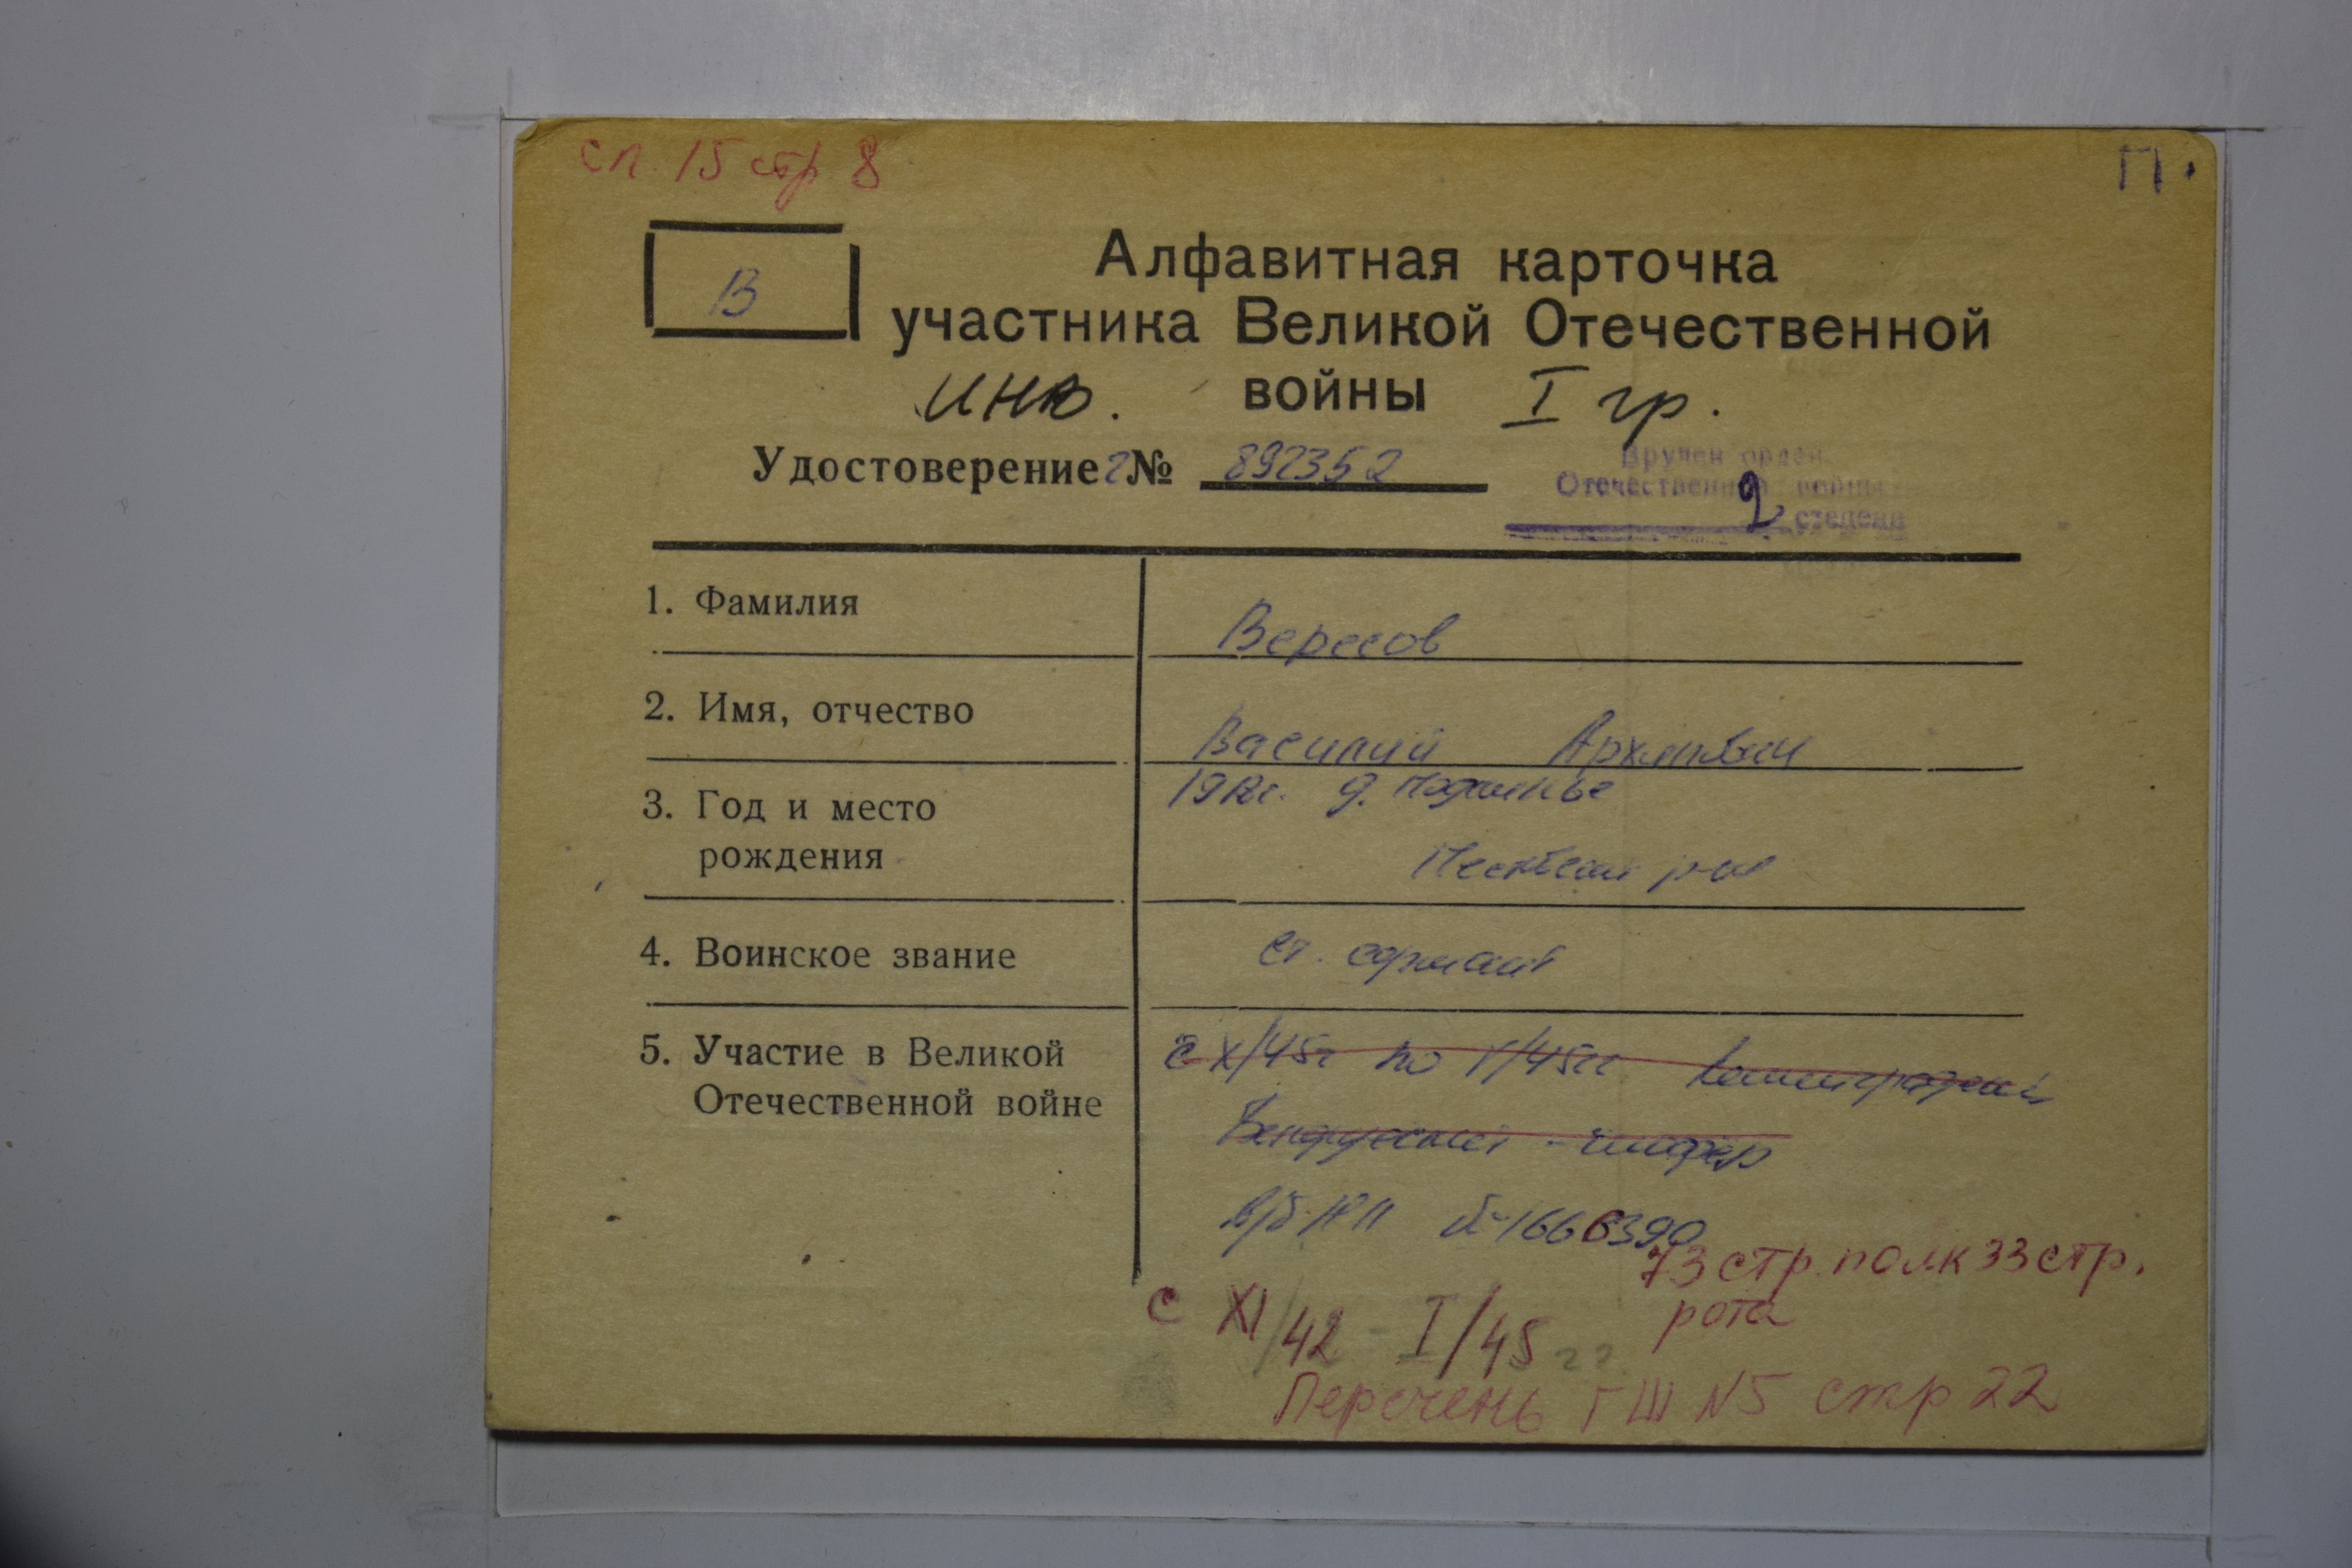 сп. 15 стр 8
П.
В
Алфавитная карточка
участника Великой Отечественной
инв. войны I гр.
Удостоверение г № 892352
Вручен орден
Отечественной войны
2 степени
1. Фамилия
Вересов
2. Имя, отчество
Василий Архипович
3. Год и место
рождения
1912г. д.
р-на
4. Воинское звание
ст. сержант
5. Участие в Великой
Отечественной войне
с X/45г по I/45гг Ленинградский
Белорусский
в/б № 1666390
73 стр. полк 33 стр.
рота
с XI/42 - I/45 гг.
Перечень ГШ N5 стр 22